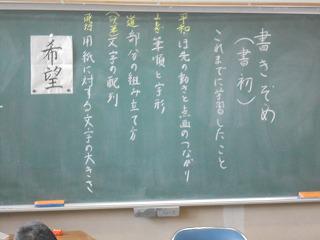 書きぞめ
(書初)
これまでに学習したこと
平和 ほ先の動きと点画のつながり
筆順と字形
道 部分の組み立て方
文字の配列
用紙に対する文字の大きさ
希望